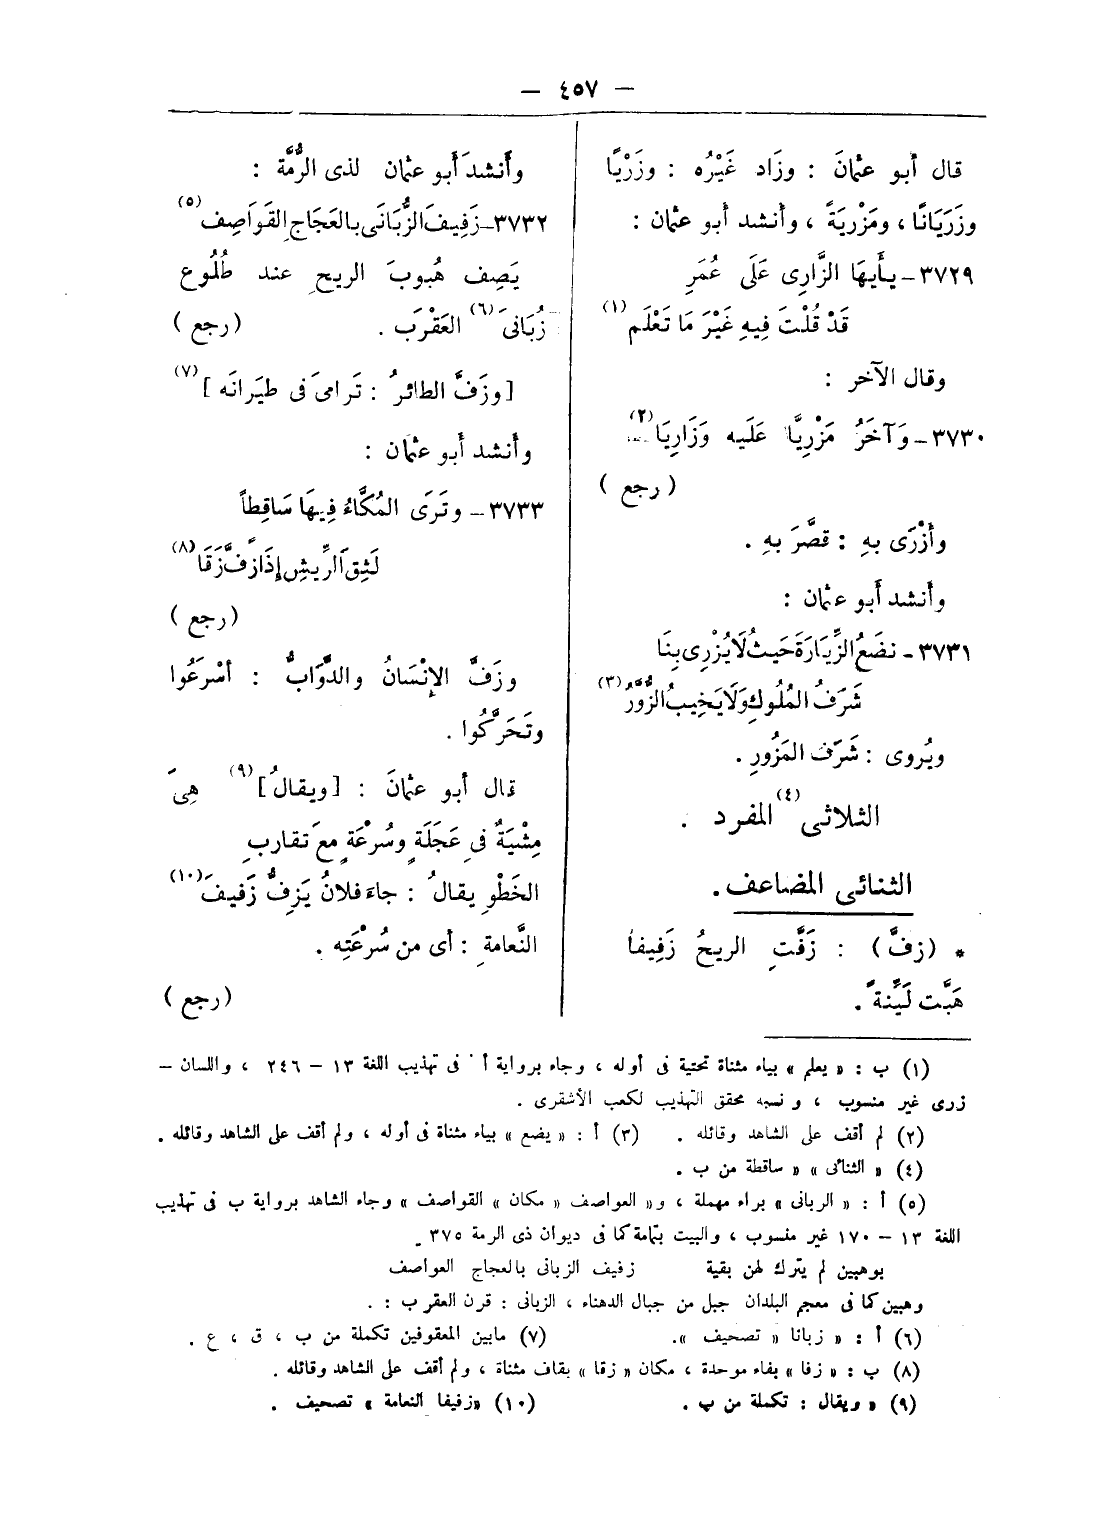 — ٤٥٧ —
قال أبو عثمانَ : وزَاد غَيْرُه : وزَرْيًا
وزَرَيَانًا ، ومَزْرِيَةً ، وأنشد أبو عثمان :
٣٧٢٩ – يأيهَا الزَّارِى عَلَى عُمَرِ
قَدْ قُلْتَ فِيهِ غَيْرَ مَا تَعْلَم (١)
وقال الآخر :
٣٧٣٠ – وَآخَرُ مَزْرِيًّا عَلَيه وَزَارِيَا (٢)
( رجع )
وأزْرَى بهِ : قصَّرَ بهِ .
وأنشد أبو عثمان :
٣٧٣١ – نضَعُ الزِّيَارَةَ حَيثُ لَا يُزْرِى بِنَا
شَرَفُ المُلُوكِ وَلَا يَخِيبُ الزُّوَّرُ (٣)
ويُروى : شَرَف المَزُورِ .
الثلاثى (٤) المفرد .
الثنائى المضاعف .
* ( زفَّ ) : زَفَّتِ الريحُ زَفِيفاً
هَبَّت لَيِّنةً .
وأَنشدَ أَبو عثمان لذى الرُّمَّة :
٣٧٣٢ – زَفِيفَ الزُّبَانَى بالعَجَاجِ القَوَاصِف (٥)
يَصِف هُبُوبَ الريحِ عند طُلُوع
زُبَانَى (٦) العَقْرَب . ( رجع )
[ وزَفَّ الطائرُ : تَرامىَ فى طيَرانَه ] (٧)
وأَنشد أَبو عثمان :
٣٧٣٣ – وتَرَى المُكَّاءُ فِيهَا سَاقِطاً
لَثِقَ الرِّيشِ إِذَا زَفَّ زَقَا (٨)
( رجع )
وزَفَّ الإنْسَانُ والدَّوَابُّ : أسْرَعُوا
وتَحَرَّكُوا .
قال أبو عثمانَ : [ ويقالُ ] (٩) هِىَ
مِشْيَةٌ فى عَجَلَةٍ وسُرْعَةٍ معَ تقارب
الخَطْوِ يقالُ : جاءَ فلانُ يَزِفُّ زَفيفَ (١٠)
النَّعامةِ : أى من سُرْعَتِه .
( رجع )
(١) ب : « يعلم » بياء مثناة تحتية فى أوله ، وجاء برواية أ فى تهذيب اللغة ١٣ – ٢٤٦ ، واللسان –
زرى غير منسوب ، ونسبه محقق التهذيب لكعب الأشقرى .
(٢) لم أقف على الشاهد وقائله . (٣) أ : « يضع » بياء مثناة فى أوله ، ولم أقف على الشاهد وقائله .
(٤) « الثنائى » « ساقطة من ب .
(٥) أ : « الربانى » براء مهملة ، و« العواصف « مكان » القواصف » وجاء الشاهد برواية ب فى تهذيب
اللغة ١٣ – ١٧٠ غير منسوب ، والبيت بتمامة كما فى ديوان ذى الرمة ٣٧٥ .
بوهبين لم يترك لهن بقية زفيف الزبانى بالعجاج العواصف
وهبين كما فى معجم البلدان جبل من جبال الدهناء ، الزبانى : قرن العقرب : .
(٦) أ : « زبانا « تصحيف ». (٧) مابين المعقوفين تكملة من ب ، ق ، ع .
(٨) ب : « زفا » بفاء موحدة ، مكان « زقا » بقاف مثناة ، ولم أقف على الشاهد وقائله .
(٩) « ويقال : تكملة من ب . (١٠) «زفيفا النعامة » تصحيف .